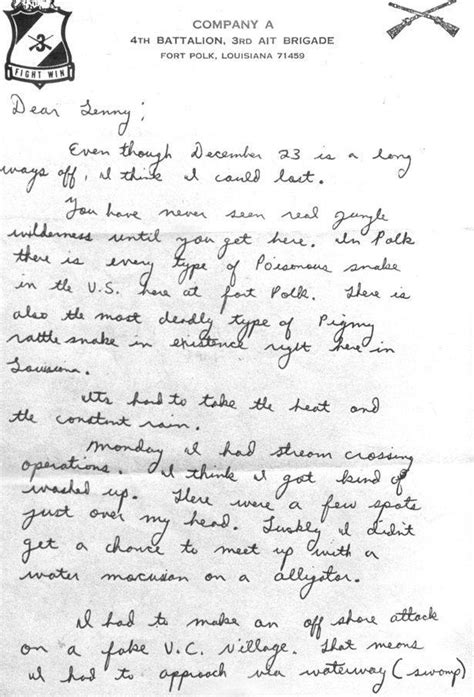 3
FIGHT WIN
COMPANY A
4TH BATTALION, 3RD AIT BRIGADE
FORT POLK, LOUISIANA 71459
Dear Lenny;
Even though December 23 is a long
ways off, I think I could last.
You have never seen real jungle
wilderness until you get here. In Polk
there is every type of Poisonous snake
in the U.S. here at fort Polk. There is
also the most deadly type of Pigmy
rattle snake in existence right here in
Louisiana.
Its hard to take the heat and
the constant rain.
Monday I had stream crossing
operations. I think I got kind of
washed up. There were a few spots
just over my head. Luckly I didn't
get a chance to meet up with a
water mocusian on a alligator.
I had to make an off shore attack
on a fake V.C. Village. That means
I had to approach via waterway (swomp)